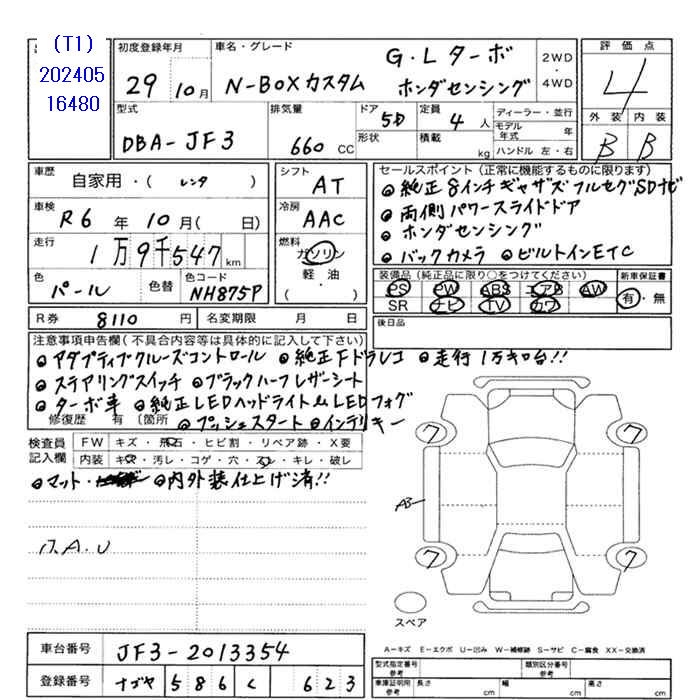 (T1)
202405
16480
初度登録年月
29 10月
車名・グレード
N-BOXカスタム
G・Lターボ
ホンダセンシング
2WD
・
4WD
評価点
4
外装 内装
B B
型式
DBA-JF3
排気量
660 CC
ドア
5D
形状
定員
4 人
積載
kg
ディーラー・並行
モデル年式 年
ハンドル 左・右
車歴
自家用・( レンタ )
車検
R6 年 10月( 日)
走行
1万9千547km
色
パール
色替
色コード
NH875P
シフト
AT
冷房
AAC
燃料
ガソリン
軽・油
( )
セールスポイント(正常に機能するものに限ります)
純正8インチギャザズフルセグSDナビ
両側パワースライドドア
ホンダセンシング
バックカメラ ビルトインETC
装備品(純正品に限り○をつけてください)
PS PW ABS エアB AW
SR ナビ TV カワ
新車保証書
有・無
R券 8110 円
名変期限 月 日
後日品
注意事項申告欄(不具合内容等は具体的に記入して下さい)
アダプティブクルーズコントロール 純正Fドラレコ 走行1万キロ台!!
ステアリングスイッチ ブラックハーフレザーシート
ターボ車 純正LEDヘッドライト&LEDフォグ
修復歴 有 〔箇所 プッシュスタート インテリキー
検査員
記入欄
FW キズ・飛石・ヒビ割・リペア跡・X要
内装 キズ・汚レ・コゲ・穴・スレ・キレ・破レ
マット・ 内外装仕上げ済!!
7 7
AB
7 7
スペア
A-キズ E-エクボ U-凹み W-補修跡 S-サビ C-腐食 XX-交換済
車台番号 JF3-2013354
登録番号 ナゴヤ 586 く 623
型式指定番号
参考
類別区分番号
参考
車庫証明用
参考
長さ cm 幅 cm 高さ cm